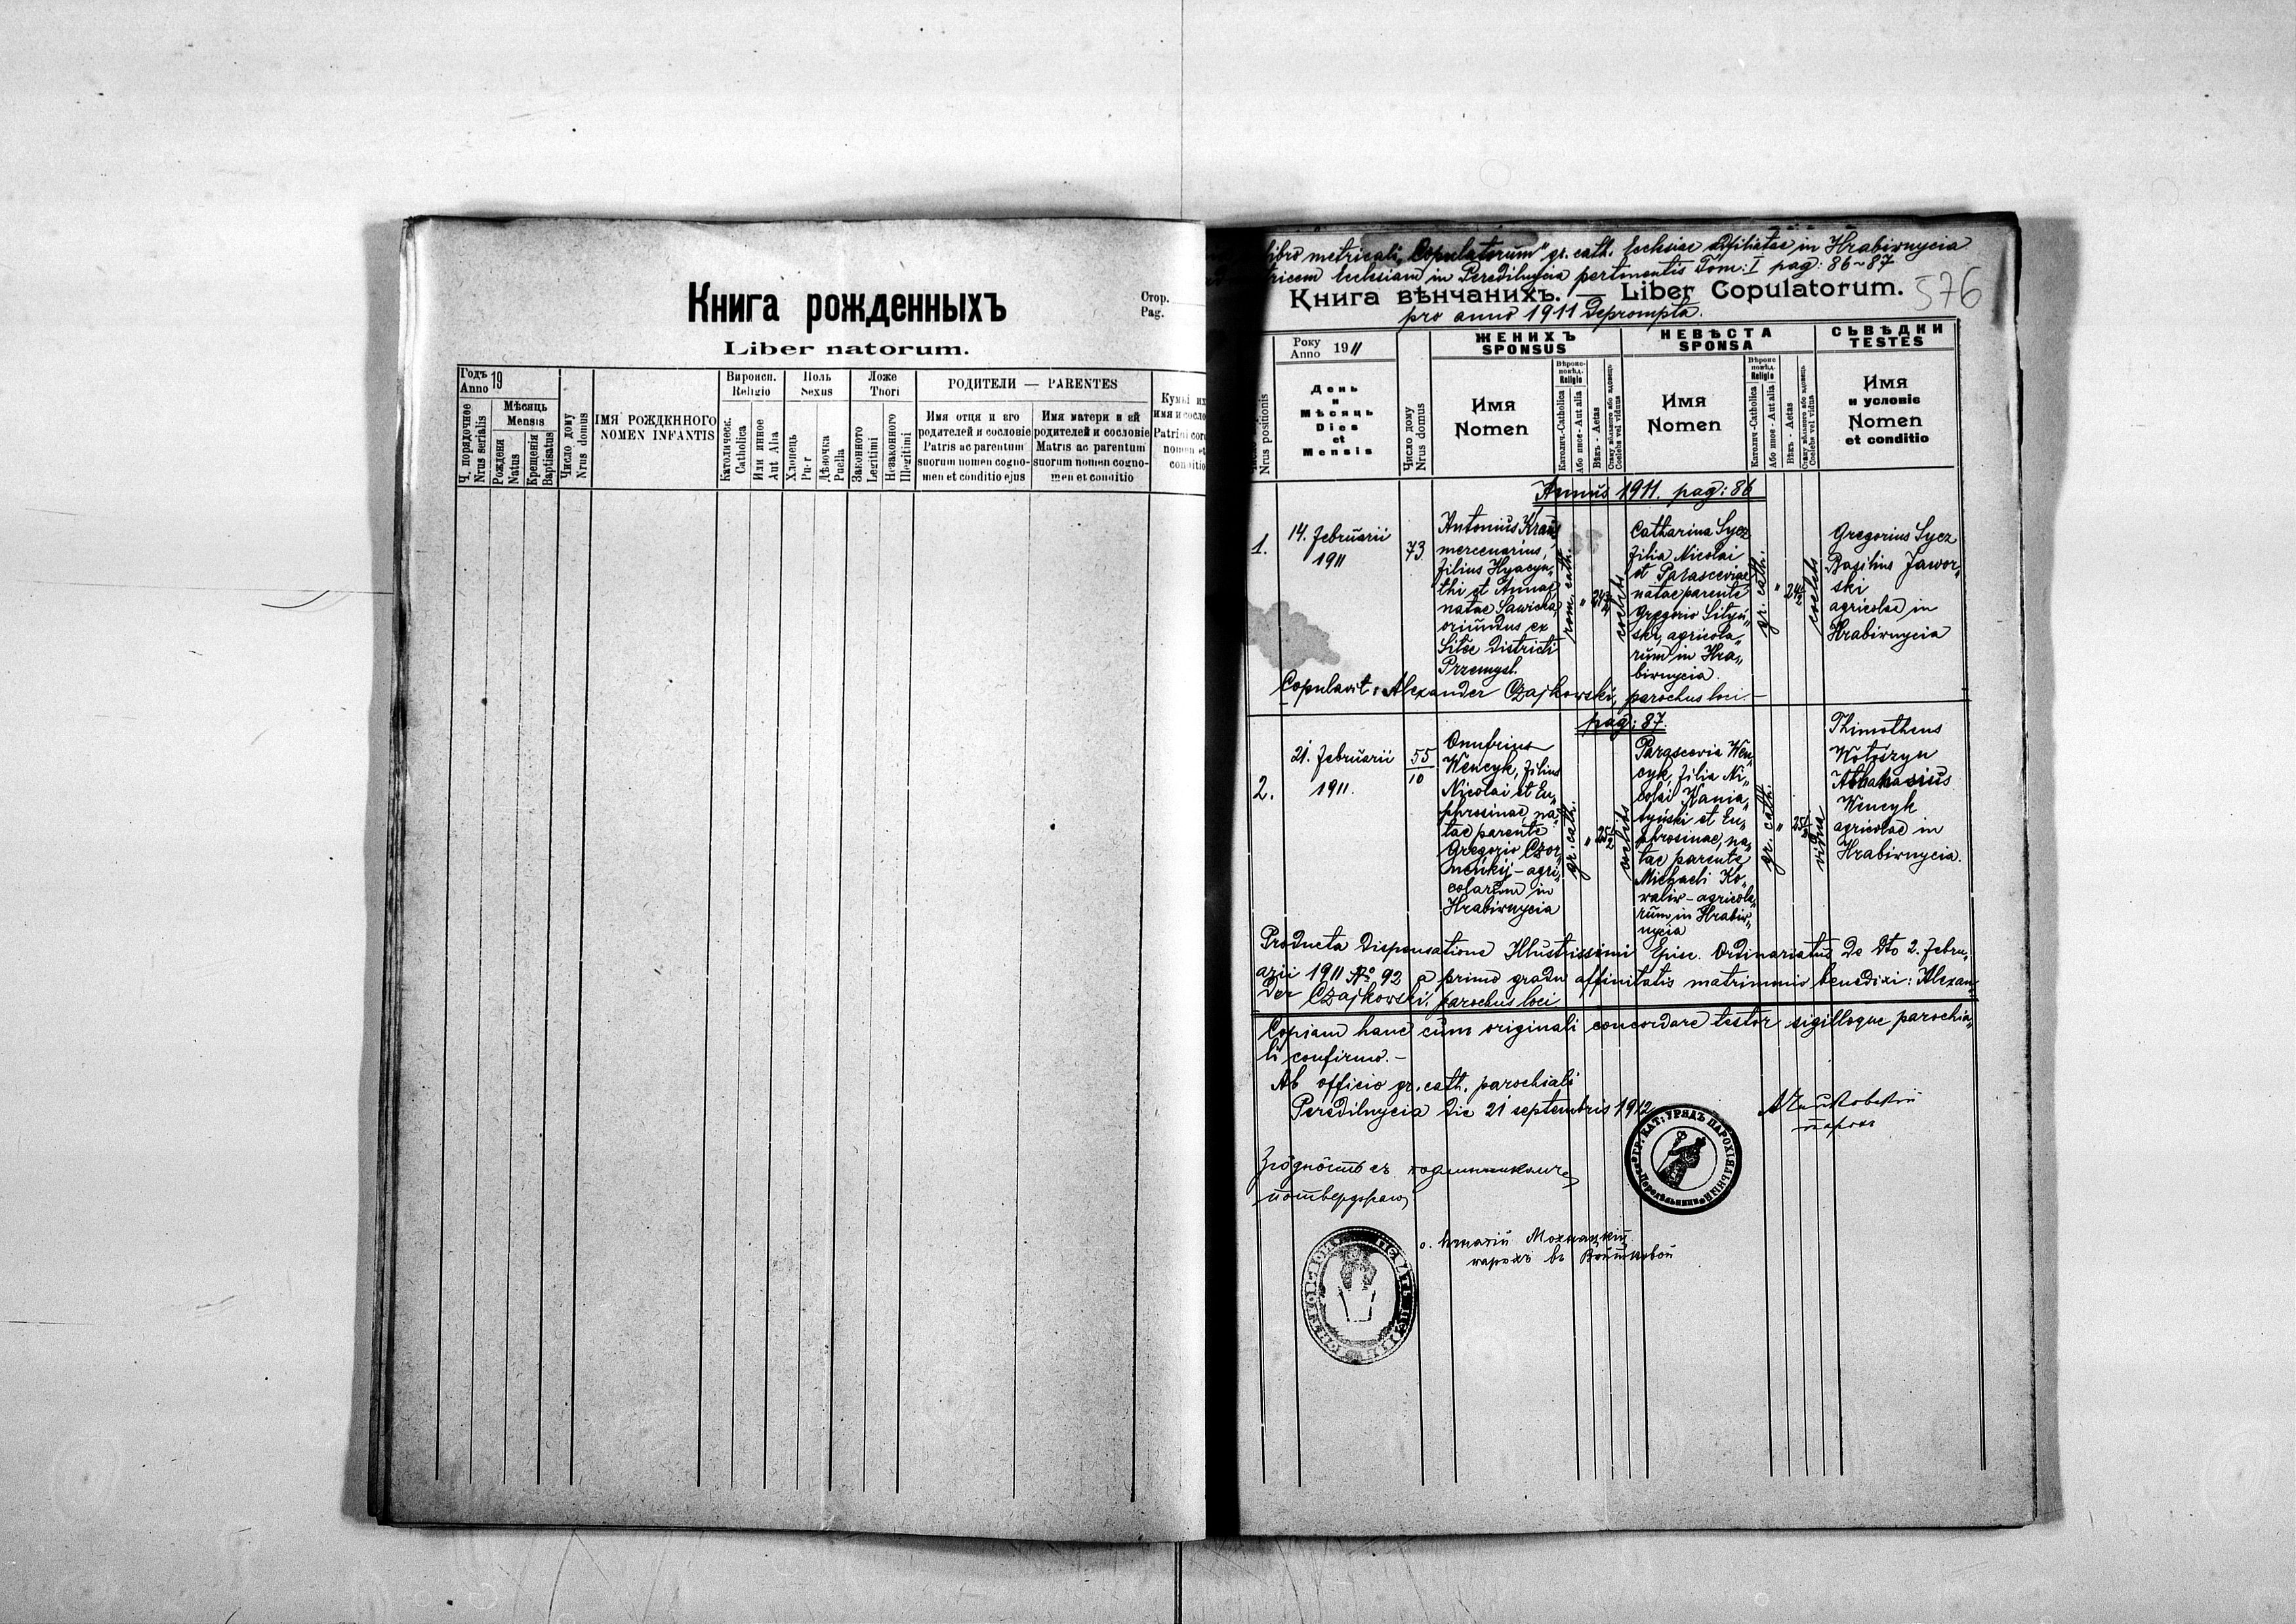 Книга рожденныхъ
Стор.
Pag.
Liber natorum.
Годъ
Anno 19
Ч. порядочное
Nrus serialis
Мѣсяць
Mensis
Рождения
Natus
Крещенія
Baptisatus
Число дому
Nrus domus
ІМЯ РОЖДЕННОГО
NOMEN INFANTIS
Вироисп.
Religio
Католическ.
Catholica
Или инное
Aut Alia
Поль
Sexus
Хлопець
Puer
Дѣвочка
Puella
Ложе
Thori
Законного
Legitimi
Незаконного
Illegitimi
РОДИТЕЛИ — PARENTES
Имя отця и его
родителей и сословіе
Patris ac parentum
suorum nomen cogno-
men et conditio ejus
Имя матери и ей
родителей и сословіе
Matris ac parentum
suorum nomen cogno-
men et conditio
Кумы их
имя и сосло
Patrini
nomen et
conditio
libro metricali "Copulatorum" gr. cath. Ecclesiae in Hrabiwnycia
tricem Ecclesiam in Peredilnycia pertinentis Tom: I pag: 86-87
576
Книга вѣнчанихъ. — Liber Copulatorum.
pro anno 1911 deprompta.
Nrus positionis
Року
Anno 1911
День
и
Мѣсяць
Dies
et
Mensis
Число дому
Nrus domus
ЖЕНИХЪ
SPONSUS
Имя
Nomen
Religio
Католич.-Catholica
Або инное - Aut alia
Вѣкъ - Aetas
Coelebs vel viduus
НЕВѢСТА
SPONSA
Имя
Nomen
Religio
Католич-Catholica
Або иное - Aut alia
Вѣкъ - Aetas
Coelebs vel vidua
СЬВѢДКИ
TESTES
Имя
и условіе
Nomen
et conditio
Annus 1911. pag: 86
1.
14. Februarii
1911
73
Antonius Kraus
mercenarius,
filius Hyacyn„
thi et Annae
natae Sawicka
oriundus ex
Districti
Przemysl.
rom. cath.
"
coelebs
Catharina Sycz
filia Nicolai
et Parasceviae
natae parente
Gregorio
ski, agricola„
rum in Hra„
biwnycia.
gr. cath.
"
coelebs
Gregorius Sycz
Basilius Jawor„
ski
agricolae in
Hrabiwnycia
Copulavit: Alexander Czajkowski, parochus loci. —
pag: 87.
2.
21. Februarii
1911.
55
10
Onufrius
Wencyk, filius
Nicolai et Eu„
phrosinae, na„
tae parente
Gregorio
agri„
colarum in
Hrabiwnycia
gr. cath.
"
coelebs
Parascevia Wen„
cyk, filia Ni„
colai
et Eu„
phrosinae, na„
tae parente
Michaeli Ko„
waliw - agricola„
rum in Hrabiw„
nycia
gr. cath.
"
vidua
Thimotheus
Wołoszyn
Athanasius
Wencyk
agricolae in
Hrabiwnycia.
Producta Dispensatione Illustrissimi Episc. Ordinariatus De Dto 2. Febru„
arii 1911 No 92 a primo gradu affinitatis matrimonio benedixi: Alexan„
der Czajkowski. parochus loci
Copiam hanc cum originali concordare testor sigilloque parochia„
li confirmo. —
Ab officio gr. cath. parochiali
Peredilnycia Die 21 septembris 1912
А Чайковскій
парох
ГР. КАТ. УРЯДЪ ПАРОХІЯЛЬНЫЙ
потверджаю
о. Игнатій Мохнацкій
парохъ въ Войтковой